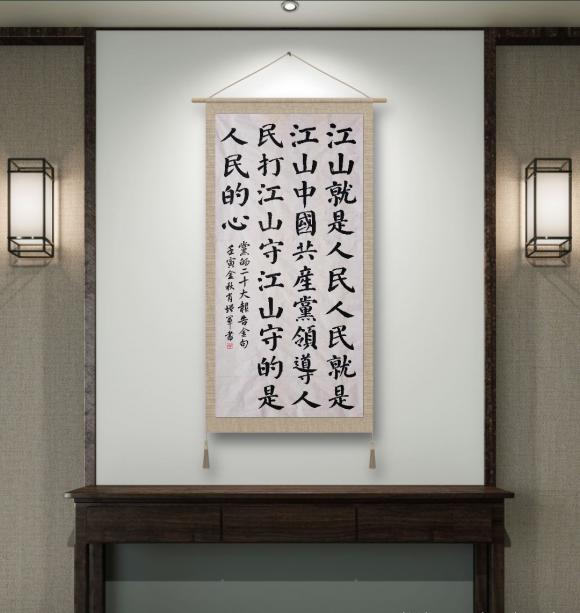 江山就是人民人民就是
江山中國共産黨領導人
民打江山守江山守的是
人民的心
黨的二十大報告金句
壬寅金秋肖增軍書